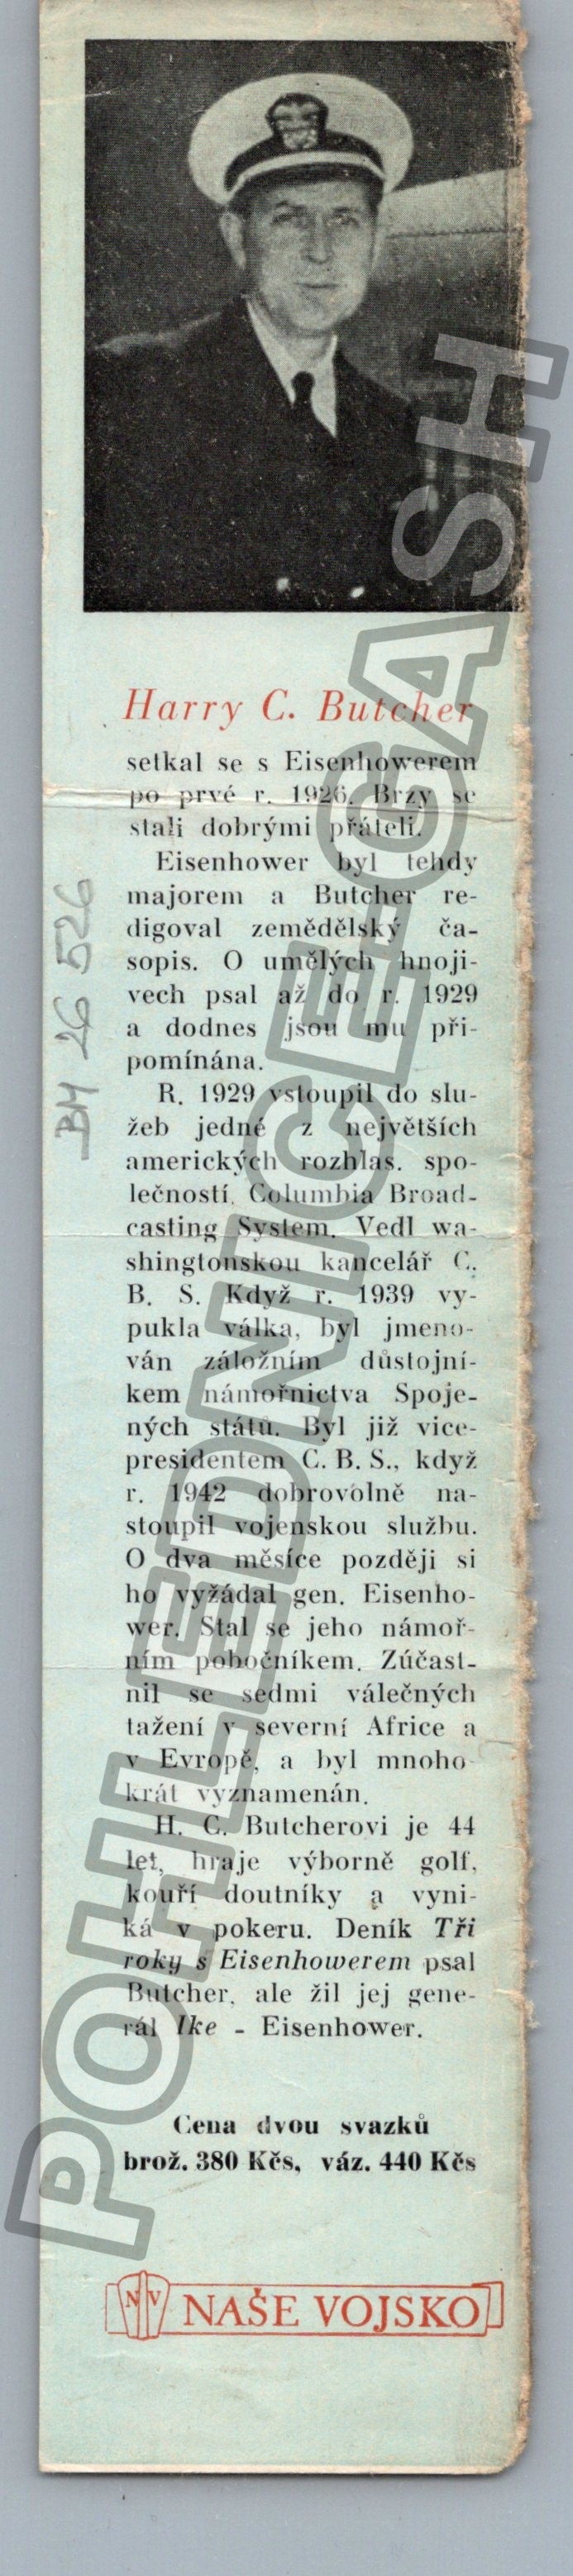 Harry C. Butcher
setkal se s Eisenhowerem
po prvé r. 1926. Brzy se
stali dobrými přáteli.
Eisenhower byl tehdy
majorem a Butcher re-
digoval zemědělský ča-
sopis. O umělých hnoji-
vech psal až do r. 1929
a dodnes jsou mu při-
pomínána.
R. 1929 vstoupil do slu-
žeb jedné z největších
amerických rozhlas. spo-
lečností, Columbia Broad-
casting System. Vedl wa-
shingtonskou kancelář C.
B. S. Když r. 1939 vy-
pukla válka, byl jmeno-
ván záložním důstojní-
kem námořnictva Spoje-
ných států. Byl již vice-
presidentem C. B. S., když
r. 1942 dobrovolně na-
stoupil vojenskou službu.
O dva měsíce později si
ho vyžádal gen. Eisenho-
wer. Stal se jeho námoř-
ním pobočníkem. Zúčast-
nil se sedmi válečných
tažení v severní Africe a
v Evropě, a byl mnoho
krát vyznamenán.
H. C. Butcherovi je 44
let, hraje výborně golf,
kouří doutníky a vyni-
ká v pokeru. Deník Tři
roky s Eisenhowerem psal
Butcher, ale žil jej gene-
rál Ike - Eisenhower.
Cena dvou svazků
brož. 380 Kčs, váz. 440 Kčs
NV NAŠE VOJSKO
BM 26 526
POHLEDNICE-GASH